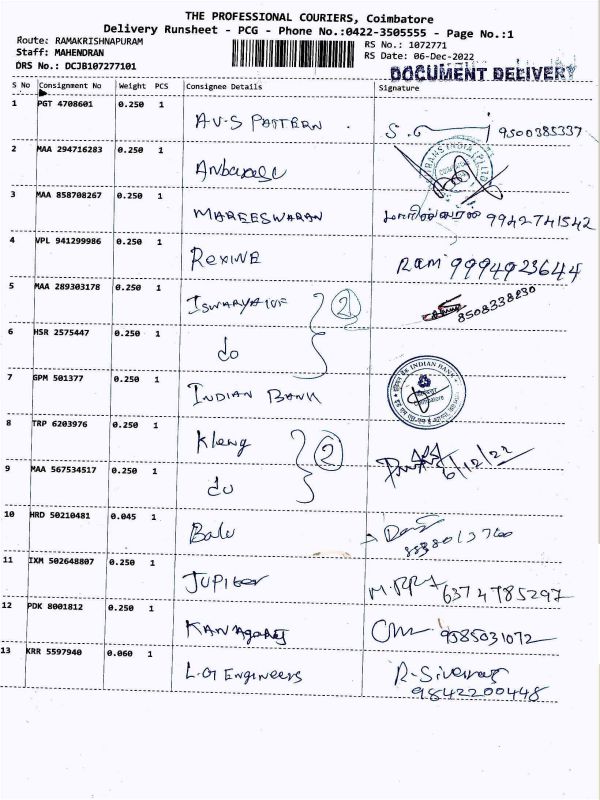 THE PROFESSIONAL COURIERS, Coimbatore
Delivery Runsheet - PCG - Phone No.:0422-3505555 - Page No.:1
Route: RAMAKRISHNAPURAM RS No.: 1072771
Staff: MAHENDRAN RS Date: 06-Dec-2022
DRS No.: DCJB107277101 DOCUMENT DELIVERY
S No Consignment No Weight PCS Consignee Details Signature
1 PGT 4708601 0.250 1
A.V.S PATTERN 9500385337
2 MAA 294716283 0.250 1
Anbarasu
3 MAA 858708267 0.250 1
MAREESWARAN 9942741542
4 VPL 941299986 0.250 1
REXINE Ram 9994923644
5 MAA 289303178 0.250 1
ISWARYA IVF 2 8508338230
6 HSR 2575447 0.250 1
do
7 GPM 501377 0.250 1
INDIAN BANK INDIAN BANK Coimbatore
8 TRP 6203976 0.250 1
2 6/12/22
9 MAA 567534517 0.250 1
do
10 HRD 50210481 0.045 1
Balu
11 IXM 502648807 0.250 1
JUPITER 6374785297
12 PDK 8001812 0.250 1
KANAgaraj 9585031072
13 KRR 5597940 0.060 1
L.G Engineers R. Sivaraj
9842200448